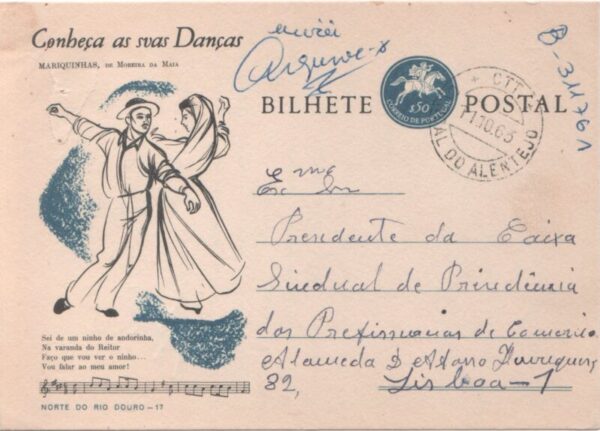 Conheça as suas Danças
MARIQUINHAS, DE MOREIRA DA MAIA
Arquive-se
B-311761
BILHETE POSTAL
1$50
CORREIO DE PORTUGAL
CTT
11.10.63
AL DO ALENTEJO
Exmo
Sr
Presidente da Caixa
Sindical de Previdência
dos Profissionais do Comércio
Alameda D. Afonso Henriques,
82, Lisboa-1
Sei de um ninho de andorinha,
Na varanda do Reitor
Faço que vou ver o ninho...
Vou falar ao meu amor!
NORTE DO RIO DOURO - 17